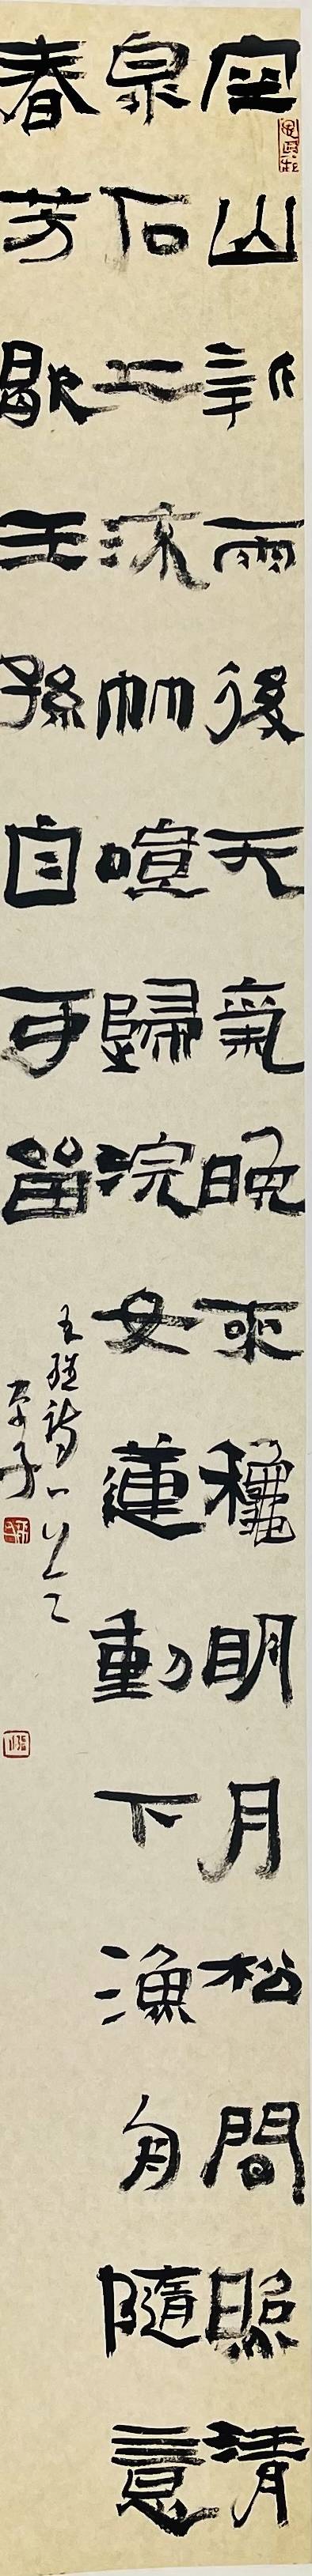 空山新雨後天氣晚來龝明月松間照清
泉石上流竹喧歸浣女蓮動下漁舟隨意
春芳歇王孫自可留
王維詩一